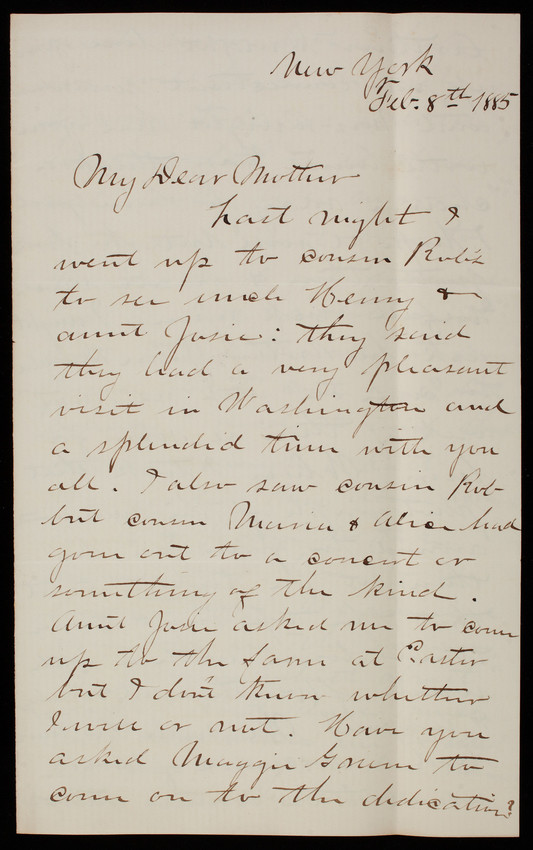 New York
Feb. 8th 1885
My Dear Mother
Last night I
went up to cousin Rob's
to see uncle Henry &
aunt Josie: they said
they had a very pleasant
visit in Washington and
a splendid time with you
all. I also saw cousin Rob
but cousin Maria & Alice had
gone out to a concert or
something of the kind.
Aunt Josie asked me to come
up to the farm at Easter
but I don't know whether
I will or not. Have you
asked Maggie to
come on to the dedication?